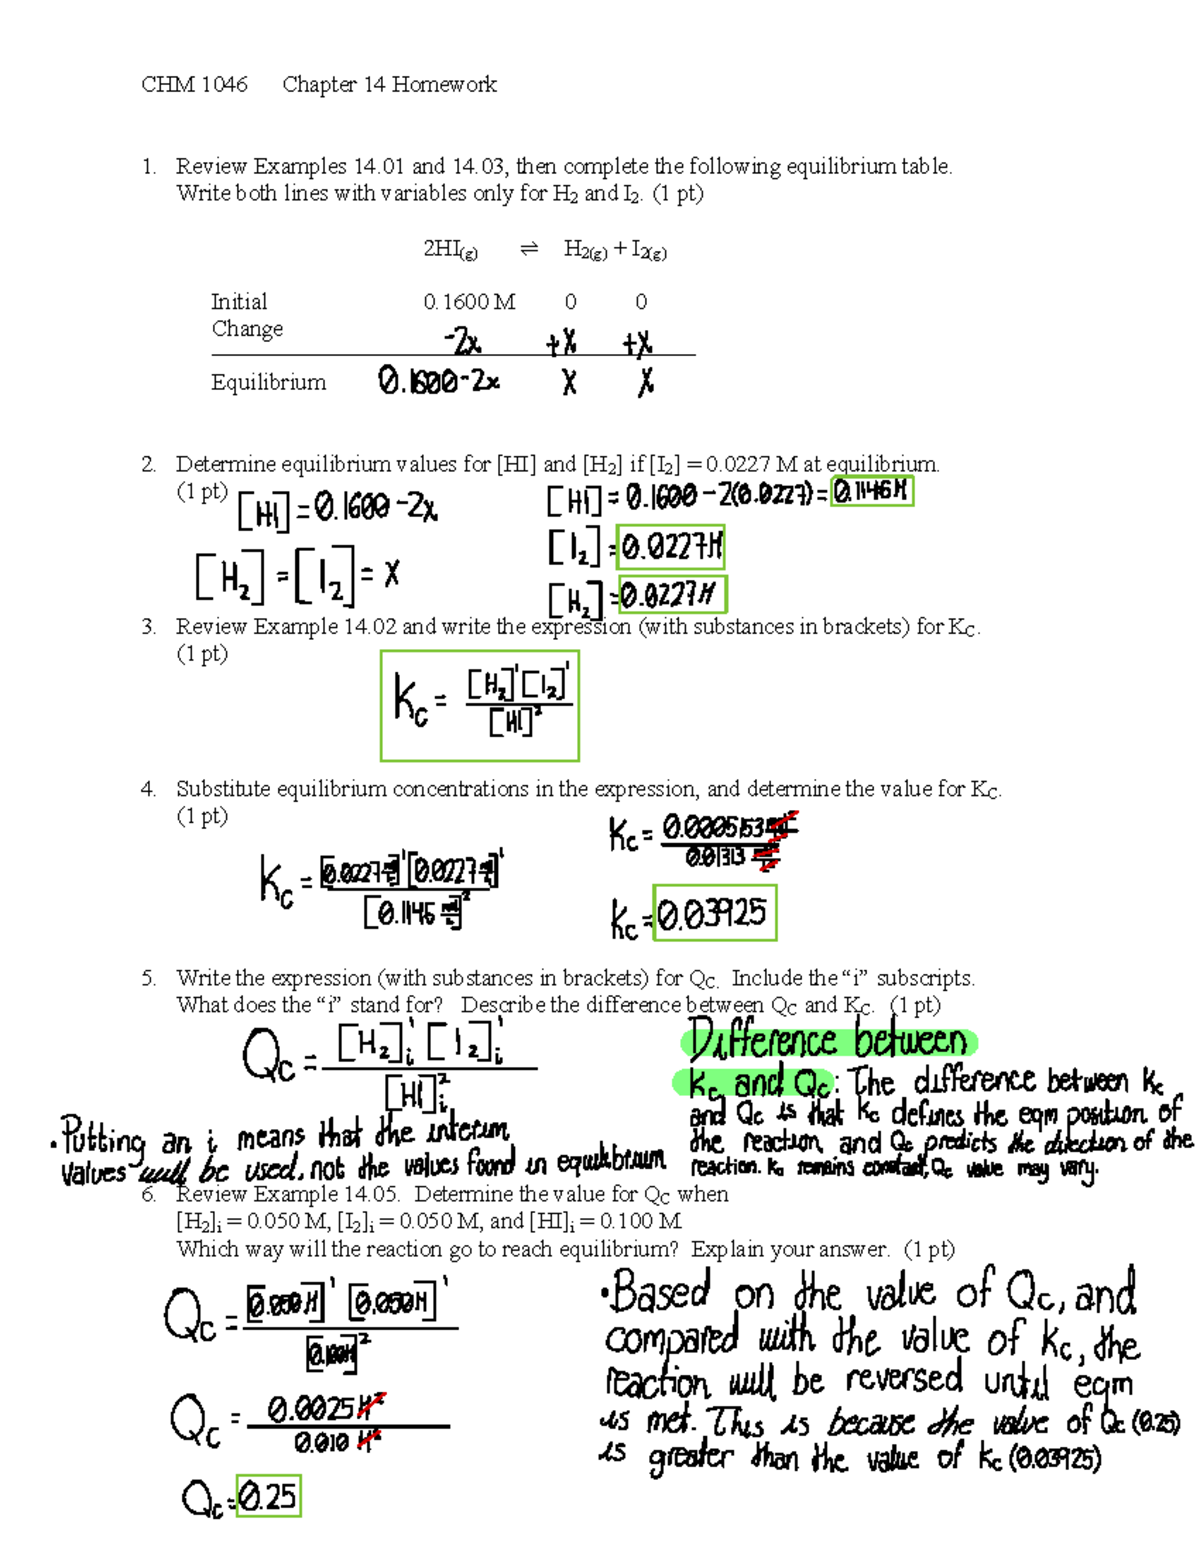 CHM 1046 Chapter 14 Homework
1. Review Examples 14.01 and 14.03, then complete the following equilibrium table.
Write both lines with variables only for H₂ and I₂. (1 pt)
2HI(g) ⇌ H₂(g) + I₂(g)
Initial 0.1600 M 0 0
Change -2x +x +x
Equilibrium 0.1600-2x x x
2. Determine equilibrium values for [HI] and [H₂] if [I₂] = 0.0227 M at equilibrium.
(1 pt) [HI] = 0.1600 - 2x [HI] = 0.1600 - 2(0.0227) = 0.1146 M
[H₂] = [I₂] = x [I₂] = 0.0227 M
[H₂] = 0.0227 M
3. Review Example 14.02 and write the expression (with substances in brackets) for KC.
(1 pt)
Kc = [H₂]¹[I₂]¹ / [HI]²
4. Substitute equilibrium concentrations in the expression, and determine the value for KC.
(1 pt) Kc = 0.0005153 / 0.01313
Kc = [0.0227]¹[0.0227]¹ / [0.1146]²
Kc = 0.03925
5. Write the expression (with substances in brackets) for QC. Include the “i” subscripts.
What does the “i” stand for? Describe the difference between QC and KC. (1 pt)
Qc = [H₂]ᵢ¹ [I₂]ᵢ¹ / [HI]ᵢ²
Difference between
Kc and Qc: The difference between Kc
and Qc is that Kc defines the eqm position of
the reaction, and Qc predicts the direction of the
reaction. Kc remains constant, Qc value may vary.
• Putting an i means that the interim
values will be used, not the values found in equilibrium
6. Review Example 14.05. Determine the value for QC when
[H₂]i = 0.050 M, [I₂]i = 0.050 M, and [HI]i = 0.100 M
Which way will the reaction go to reach equilibrium? Explain your answer. (1 pt)
Qc = [0.050 M]¹ [0.050 M]¹ / [0.100M]²
Qc = 0.0025 M² / 0.010 M²
Qc = 0.25
• Based on the value of Qc, and
compared with the value of Kc, the
reaction will be reversed until eqm
is met. This is because the value of Qc (0.25)
is greater than the value of Kc (0.03925)